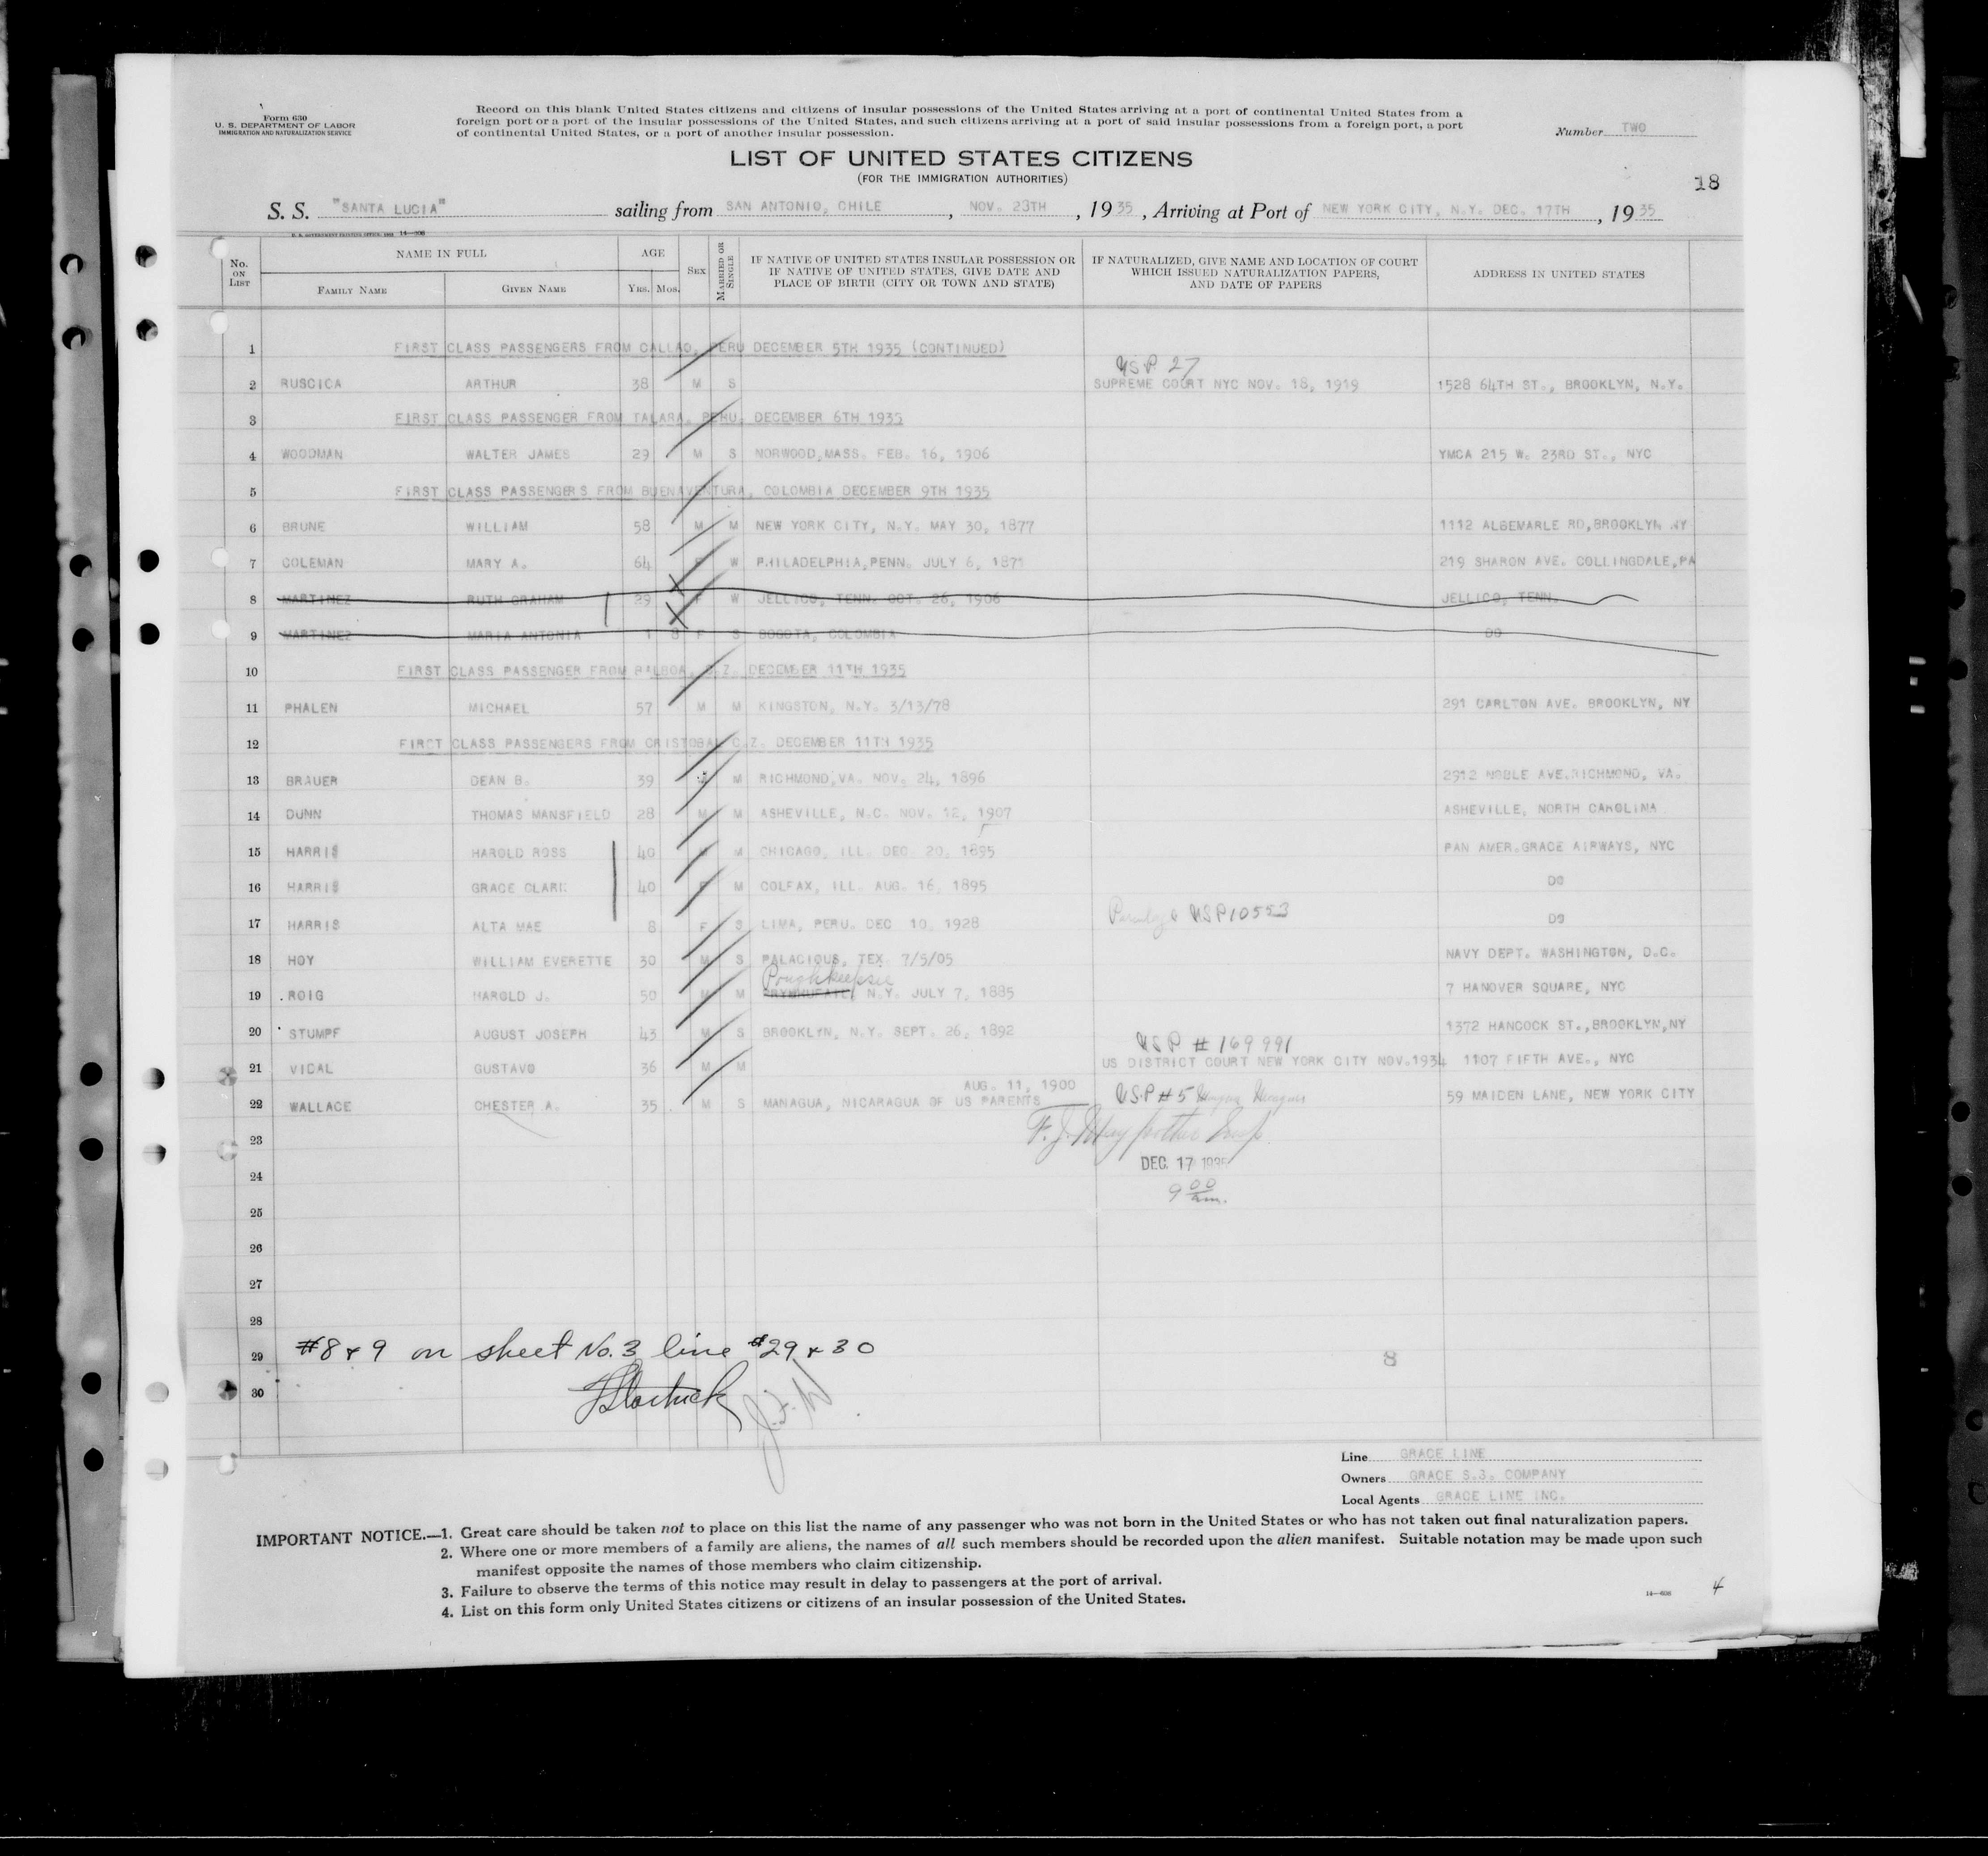 Form 630
U. S. DEPARTMENT OF LABOR
IMMIGRATION AND NATURALIZATION SERVICE
Record on this blank United States citizens and citizens of insular possessions of the United States arriving at a port of continental United States from a
foreign port or a port of the insular possessions of the United States, and such citizens arriving at a port of said insular possessions from a foreign port, a port
of continental United States, or a port of another insular possession.
Number TWO
LIST OF UNITED STATES CITIZENS
(FOR THE IMMIGRATION AUTHORITIES)
18
S. S. "SANTA LUCIA" sailing from SAN ANTONIO, CHILE, NOV. 23TH, 1935, Arriving at Port of NEW YORK CITY, N.Y. DEC. 17TH, 1935
No. ON LIST NAME IN FULL AGE SEX MARRIED OR SINGLE IF NATIVE OF UNITED STATES INSULAR POSSESSION OR IF NATIVE OF UNITED STATES, GIVE DATE AND PLACE OF BIRTH (CITY OR TOWN AND STATE) IF NATURALIZED, GIVE NAME AND LOCATION OF COURT WHICH ISSUED NATURALIZATION PAPERS, AND DATE OF PAPERS ADDRESS IN UNITED STATES
FAMILY NAME GIVEN NAME YRS. MOS.
1 FIRST CLASS PASSENGERS FROM CALLAO, PERU DECEMBER 5TH 1935 (CONTINUED)
USP 27
2 RUSCICA ARTHUR 38 M S SUPREME COURT NYC NOV. 18, 1919 1528 64TH ST., BROOKLYN, N.Y.
3 FIRST CLASS PASSENGER FROM TALARA, PERU, DECEMBER 6TH 1935
4 WOODMAN WALTER JAMES 29 M S NORWOOD, MASS. FEB. 16, 1906 YMCA 215 W. 23RD ST., NYC
5 FIRST CLASS PASSENGERS FROM BUENAVENTURA, COLOMBIA DECEMBER 9TH 1935
6 BRUNE WILLIAM 58 M M NEW YORK CITY, N.Y. MAY 30, 1877 1112 ALBEMARLE RD, BROOKLYN NY
7 COLEMAN MARY A. 64 F W PHILADELPHIA, PENN. JULY 6, 1871 219 SHARON AVE. COLLINGDALE, PA
8 MARTINEZ RUTH GRAHAM 29 F W JELLICO, TENN. OCT. 26, 1906 JELLICO, TENN.
9 MARTINEZ MARIA ANTONIA 1 8 F S BOGOTA, COLOMBIA DO
10 FIRST CLASS PASSENGER FROM BALBOA, C.Z. DECEMBER 11TH 1935
11 PHALEN MICHAEL 57 M M KINGSTON, N.Y. 3/13/78 291 CARLTON AVE. BROOKLYN, NY
12 FIRST CLASS PASSENGERS FROM CRISTOBAL C.Z. DECEMBER 11TH 1935
13 BRAUER DEAN B. 39 M M RICHMOND, VA. NOV. 24, 1896 2912 NOBLE AVE. RICHMOND, VA.
14 DUNN THOMAS MANSFIELD 28 M M ASHEVILLE, N.C. NOV. 12, 1907 ASHEVILLE, NORTH CAROLINA
15 HARRIS HAROLD ROSS 40 M M CHICAGO, ILL. DEC. 20, 1895 PAN AMER.GRACE AIRWAYS, NYC
16 HARRIS GRACE CLARK 40 F M COLFAX, ILL. AUG. 16, 1895 DO
17 HARRIS ALTA MAE 8 F S LIMA, PERU. DEC 10, 1928 USP10553 DO
18 HOY WILLIAM EVERETTE 30 M S PALACIOUS, TEX. 7/5/05 NAVY DEPT. WASHINGTON, D.C.
Poughkeepsie
19 ROIG HAROLD J. 50 M M N.Y. JULY 7, 1885 7 HANOVER SQUARE, NYC
20 STUMPF AUGUST JOSEPH 43 M S BROOKLYN, N.Y. SEPT. 26, 1892 1372 HANCOCK ST., BROOKLYN, NY
USP # 169991
21 VIDAL GUSTAVO 36 M M US DISTRICT COURT NEW YORK CITY NOV.1934 1107 FIFTH AVE., NYC
AUG. 11, 1900
22 WALLACE CHESTER A. 35 M S MANAGUA, NICARAGUA OF US PARENTS USP #5 59 MAIDEN LANE, NEW YORK CITY
23
24 DEC. 17 1935
9 00 am.
25
26
27
28
29 #8 & 9 on sheet No. 3 line #29 & 30
8
30
Line GRACE LINE
Owners GRACE S.S. COMPANY
Local Agents GRACE LINE INC.
IMPORTANT NOTICE.—1. Great care should be taken not to place on this list the name of any passenger who was not born in the United States or who has not taken out final naturalization papers.
2. Where one or more members of a family are aliens, the names of all such members should be recorded upon the alien manifest. Suitable notation may be made upon such
manifest opposite the names of those members who claim citizenship.
3. Failure to observe the terms of this notice may result in delay to passengers at the port of arrival.
4. List on this form only United States citizens or citizens of an insular possession of the United States.
14—608
4